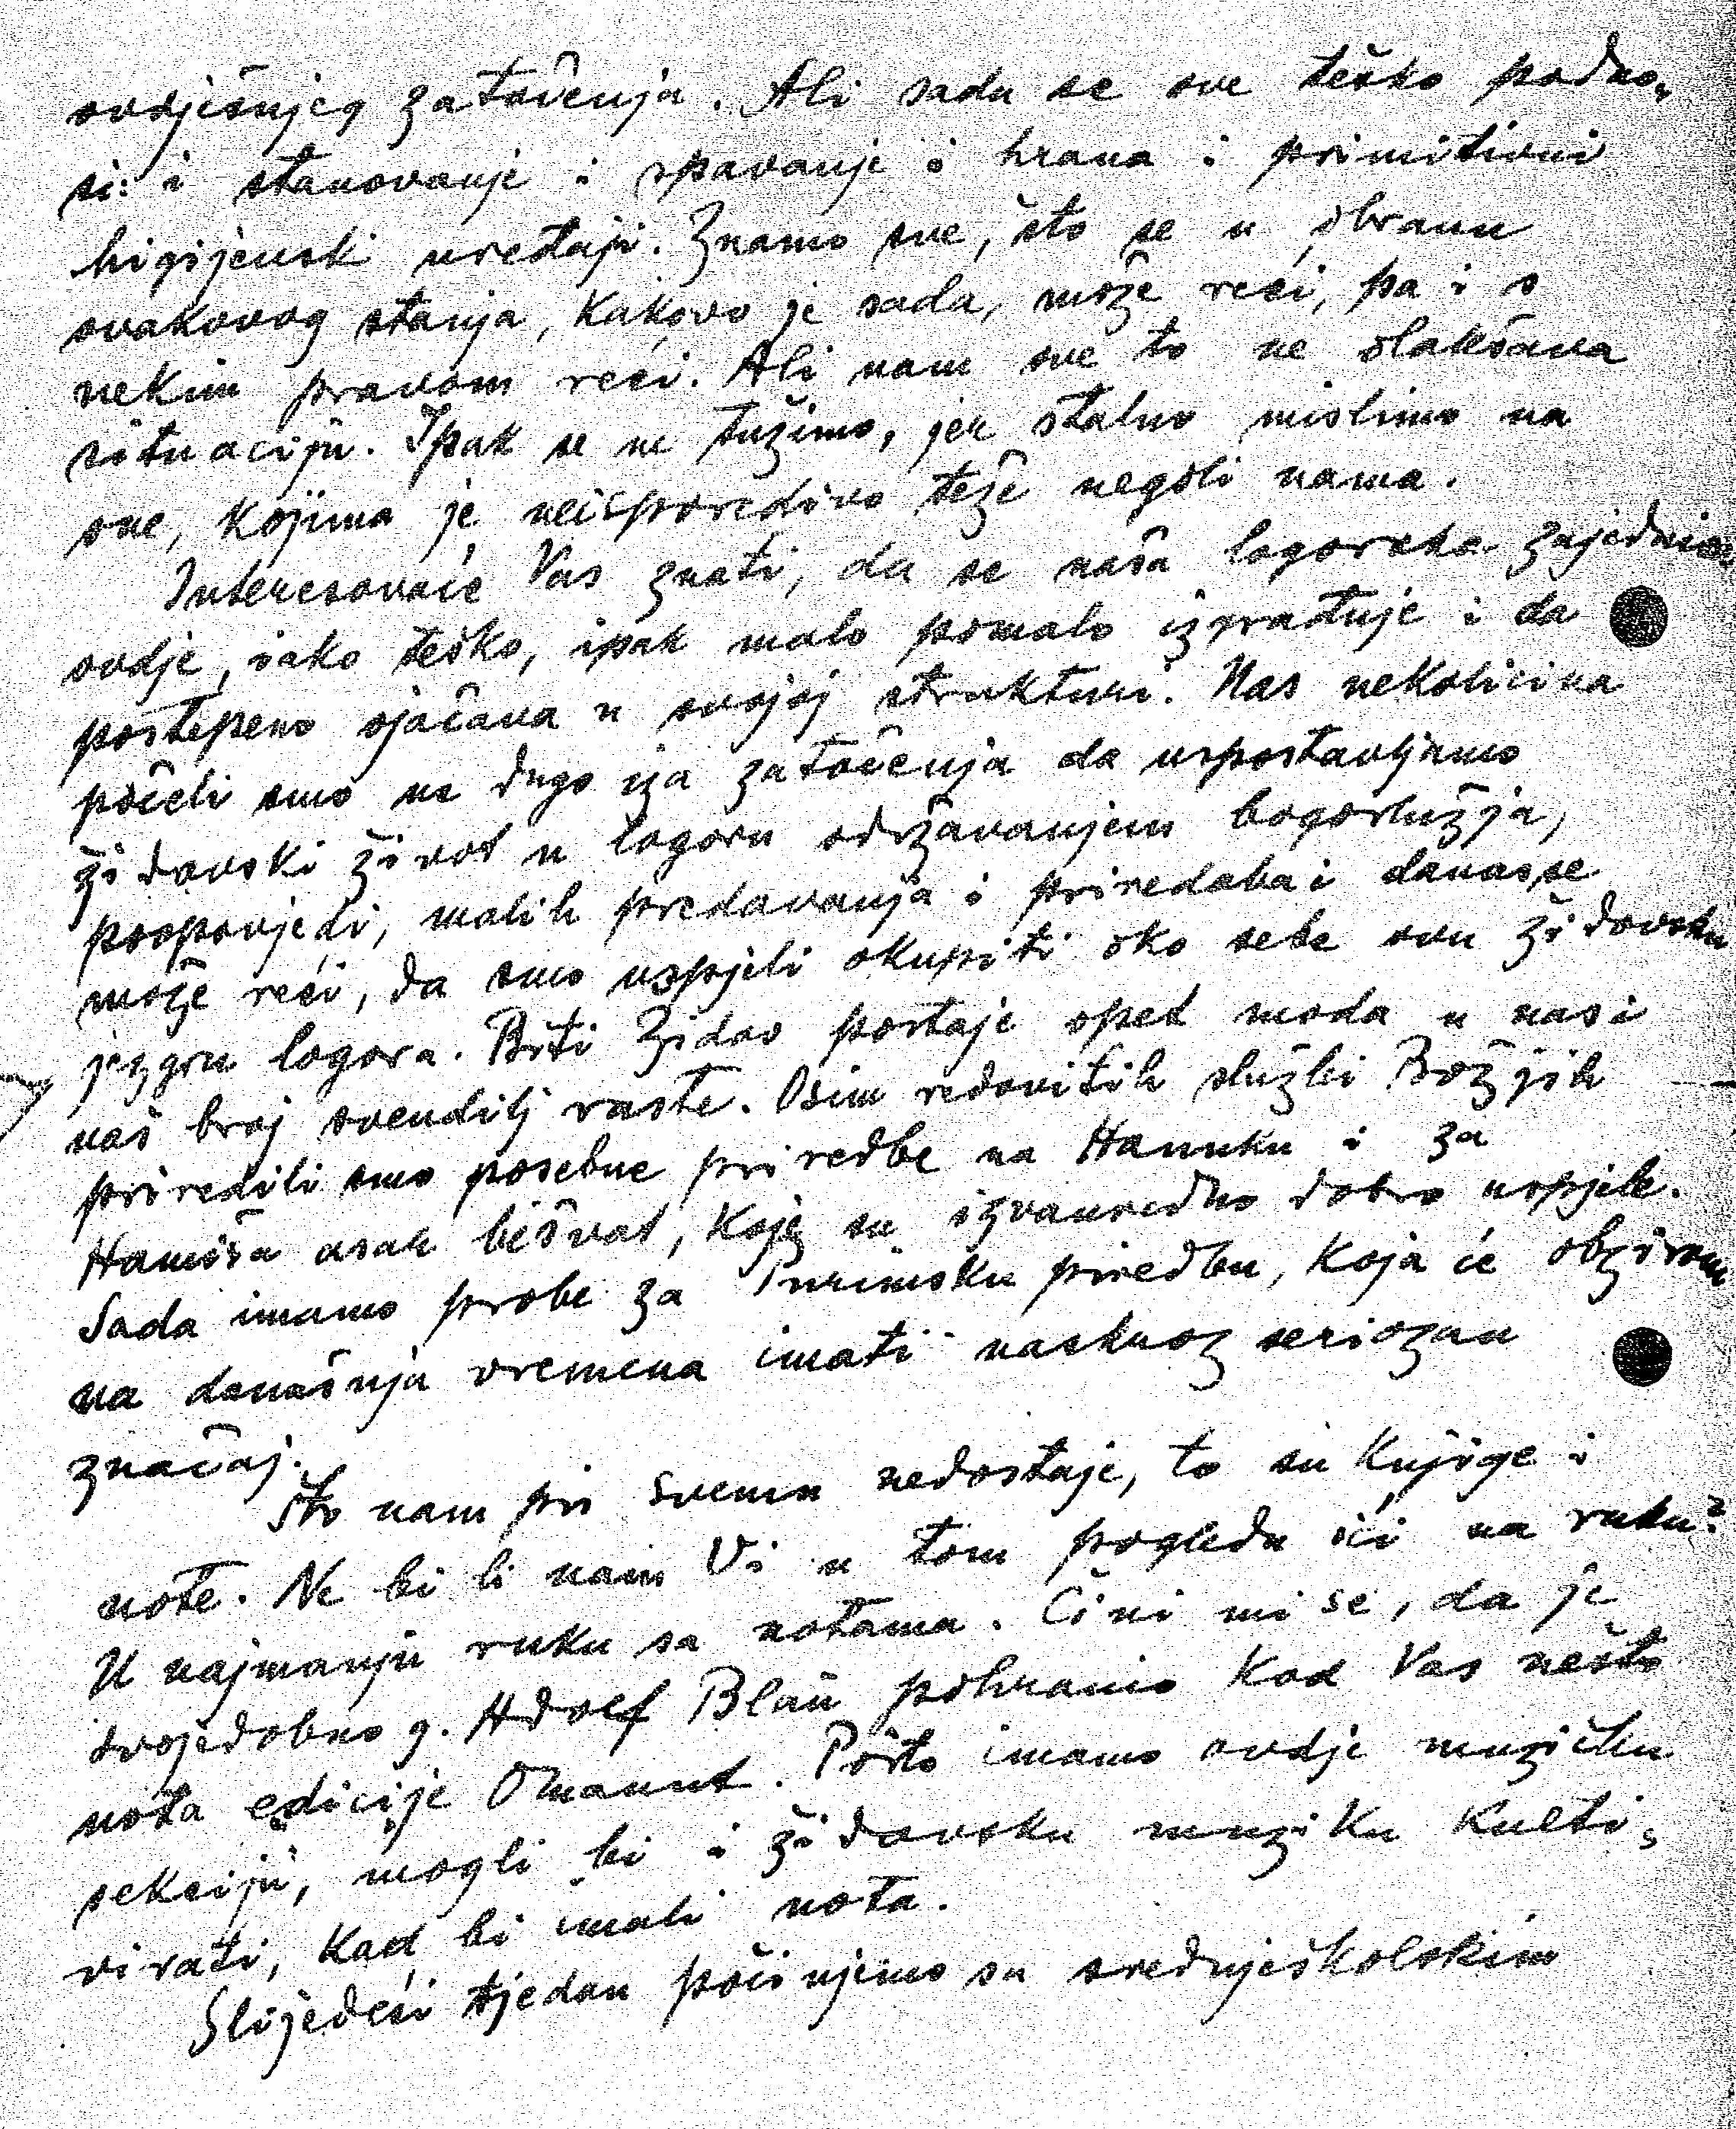 ovdješnjeg zatočenja. Ali sada se sve teško podno-
si: i stanovanje i spavanje i hrana i primitivni
higijenski uređaji. Znamo sve, što se u obranu
ovakovog stanja, kakovo je sada, može reći, pa i s
nekim pravom reći. Ali nam sve to ne olakšava
situaciju. Ipak se ne tužimo, jer stalno mislimo na
one, kojima je neisporedivo teže negoli nama.
Interesovaće Vas znati, da se naša logorska zajednica
ovdje, iako teško, ipak malo pomalo izgrađuje i da
postepeno ojačava u svojoj strukturi. Nas nekolicina
počeli smo ne dugo iza zatočenja da uspostavljamo
židovski život u logoru održavanjem bogoslužja,
propovjedi, malih predavanja i priredaba i danas se
može reći, da smo uspjeli okupiti oko sebe svu židovsku
jezgru logora. Biti Židov postaje opet moda u nas i
naš broj svendilj raste. Osim redovitih službi Božjih
priredili smo posebne priredbe na Hanuku i za
Hamiša asar bišvat, koje su izvanredno dobro uspjele.
Sada imamo probe za Purimsku priredbu, koja će obzirom
na današnja vremena imati naskroz seriozan
značaj.
Što nam pri svemu nedostaje, to su knjige i
note. Ne bi li nam Vi u tom pogledu ići na ruku?
U najmanju ruku sa notama. Čini mi se, da je
svojedobno g. Adolf Blau pohranio kod Vas nešto
nota edicije Omanut. Pošto imamo ovdje muzičku
sekciju, mogli bi i židovsku muziku kulti-
virati, kad bi imali nota.
Slijedeći tjedan počinjemo sa srednješkolskim